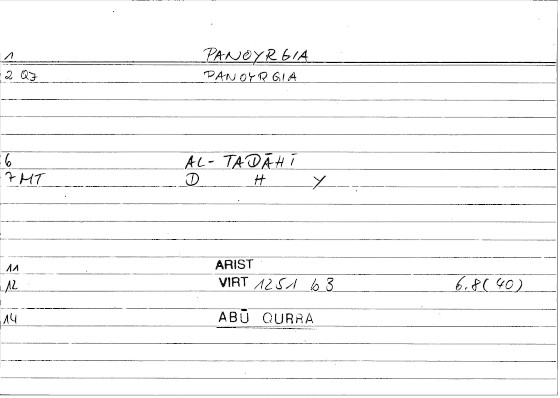 1 PANOYRGIA
2 QZ PANOYRGIA
6 AL-TADĀHĪ
7 MT D H Y
11 ARIST
12 VIRT 1251 b 3 6.8(40)
14 ABŪ QURRA